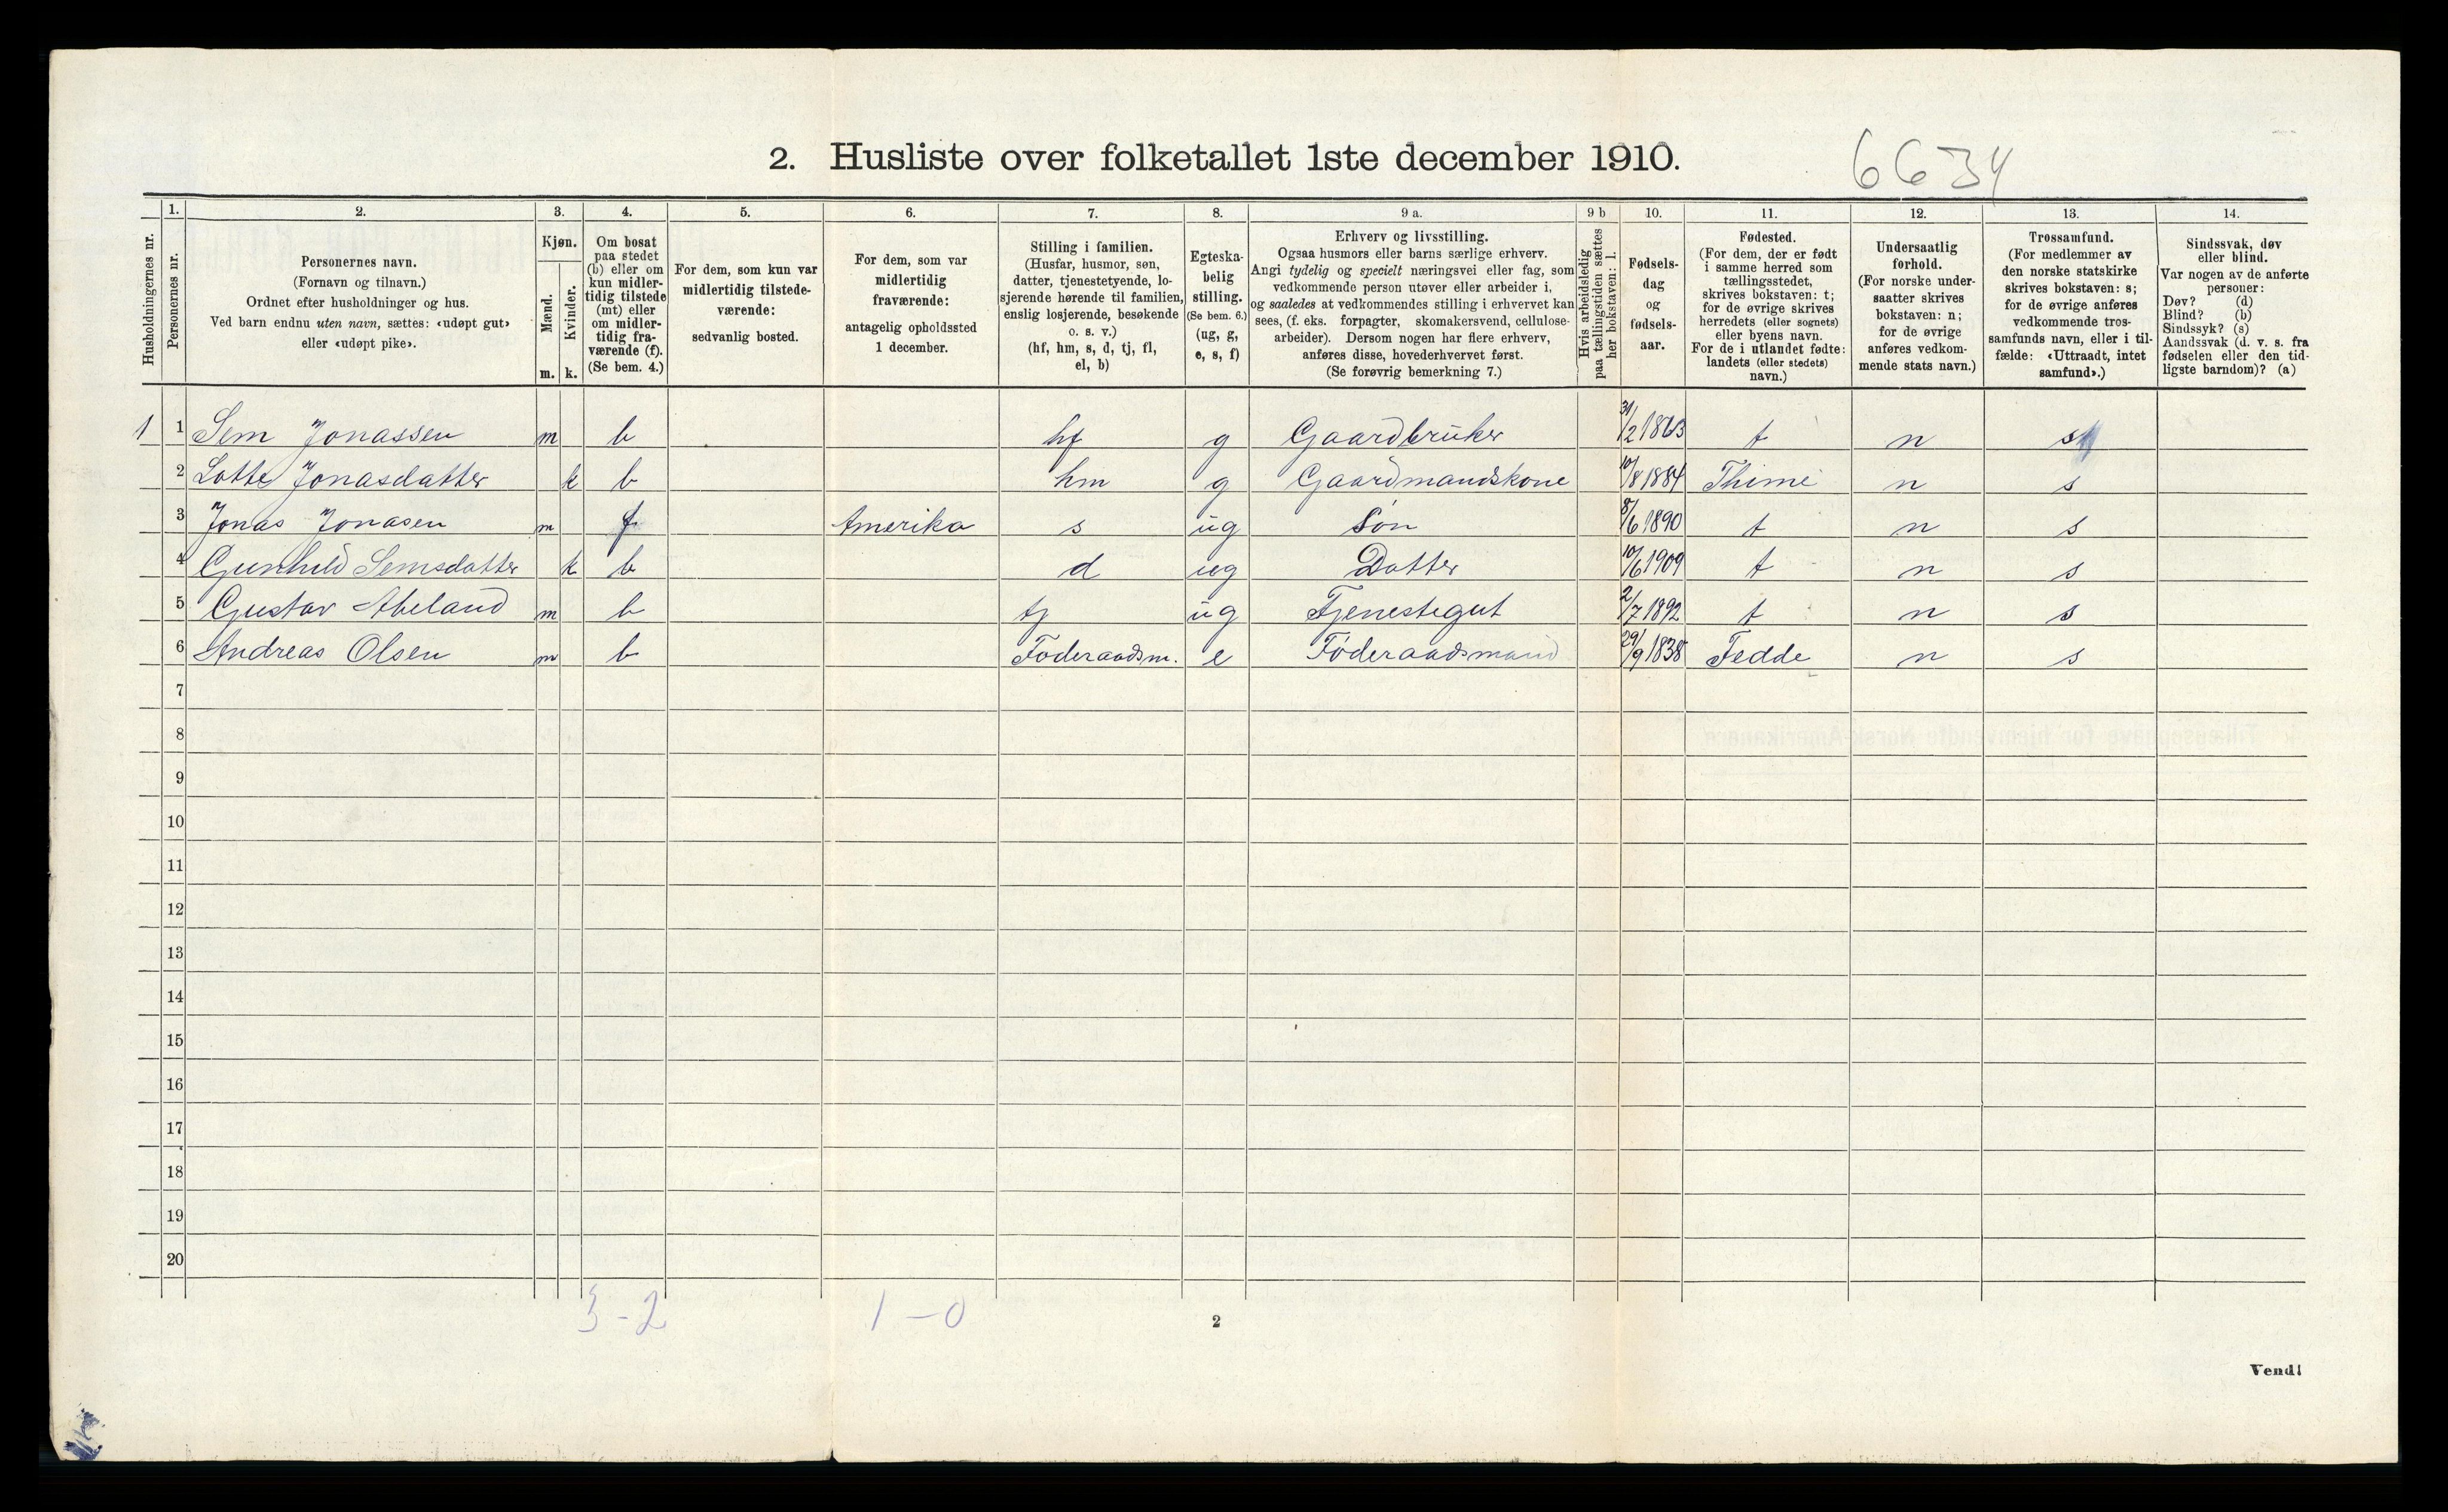 2. Husliste over folketallet 1ste december 1910. 6634
Husholdningernes nr.
1.
Personernes nr.
2.
Personernes navn.
(Fornavn og tilnavn.)
Ordnet efter husholdninger og hus.
Ved barn endnu uten navn, sættes: «udøpt gut»
eller «udøpt pike».
3.
Kjøn.
Mænd.
Kvinder.
m. k.
4.
Om bosat
paa stedet
(b) eller om
kun midler-
tidig tilstede
(mt) eller
om midler-
tidig fra-
værende (f).
(Se bem. 4.)
5.
For dem, som kun var
midlertidig tilstede-
værende:
sedvanlig bosted.
6.
For dem, som var
midlertidig
fraværende:
antagelig opholdssted
1 december.
7.
Stilling i familien.
(Husfar, husmor, søn,
datter, tjenestetyende, lo-
sjerende hørende til familien,
enslig losjerende, besøkende
o. s. v.)
(hf, hm, s, d, tj, fl,
el, b)
8.
Egteska-
belig
stilling.
(Se bem. 6.)
(ug, g,
e, s, f)
9 a.
Erhverv og livsstilling.
Ogsaa husmors eller barns særlige erhverv.
Angi tydelig og specielt næringsvei eller fag, som
vedkommende person utøver eller arbeider i,
og saaledes at vedkommendes stilling i erhvervet kan
sees, (f. eks. forpagter, skomakersvend, cellulose-
arbeider). Dersom nogen har flere erhverv,
anføres disse, hovederhvervet først.
(Se forøvrig bemerkning 7.)
9 b
Hvis arbeidsledig
paa tællingstiden sættes
her bokstaven: l.
10.
Fødsels-
dag
og
fødsels-
aar.
11.
Fødested.
(For dem, der er født
i samme herred som
tællingsstedet,
skrives bokstaven: t;
for de øvrige skrives
herredets (eller sognets)
eller byens navn.
For de i utlandet fødte:
landets (eller stedets)
navn.)
12.
Undersaatlig
forhold.
(For norske under-
saatter skrives
bokstaven: n;
for de øvrige
anføres vedkom-
mende stats navn.)
13.
Trossamfund.
(For medlemmer av
den norske statskirke
skrives bokstaven: s;
for de øvrige anføres
vedkommende tros-
samfunds navn, eller i til-
fælde: «Uttraadt, intet
samfund».)
14.
Sindssvak, døv
eller blind.
Var nogen av de anførte
personer:
Døv? (d)
Blind? (b)
Sindssyk? (s)
Aandssvak (d. v. s. fra
fødselen eller den tid-
ligste barndom)? (a)
1 1 Sem Jonassen m b hf g Gaardbruker 31/2 1863 t n s
2 Lotte Jonasdatter k b hm g Gaardmandskone 10/8 1884 Thime n s
3 Jonas Jonasen m f Amerika s ug Søn 8/6 1890 t n s
4 Gunhild Semsdatter k b d ug Datter 10/6 1909 t n s
5 Gustav Abeland m b tj ug Tjenestegut 2/7 1892 t n s
6 Andreas Olsen m b Føderaadsm. e Føderaadsmand 29/9 1838 Fedde n s
7
8
9
10
11
12
13
14
15
16
17
18
19
20
3-2 1-0
2
Vend!